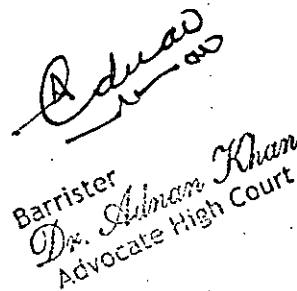 Adnan
Barrister
Dr. Adnan Khan
Advocate High Court